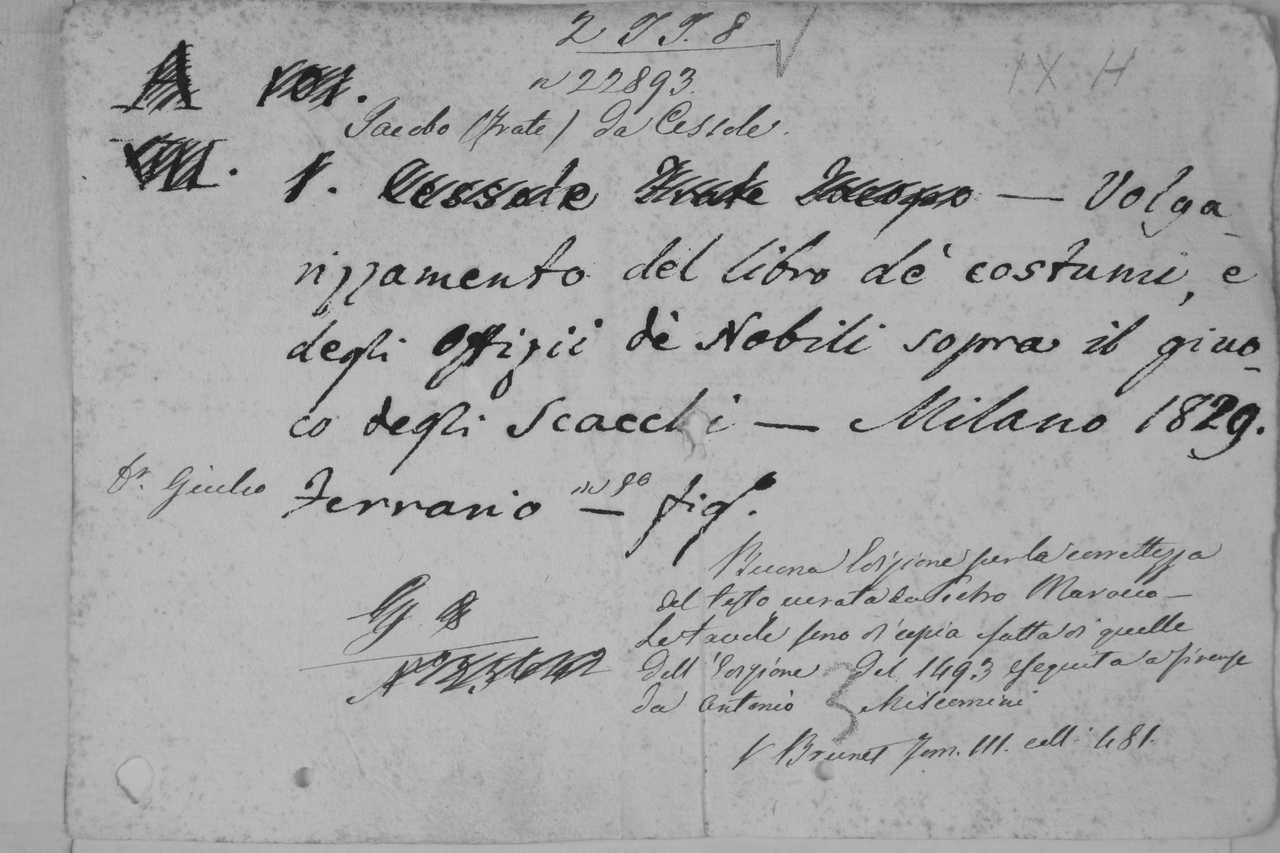 2 TT. 8
IX H
n 22893.
A
Jacobo (Frate) da Cessole.
1. Cessole Frate Jacopo — Volga-
rizzamento del libro de' costumi, e
degli Offizii de' Nobili sopra il giuo-
co degli Scacchi — Milano 1829.
Dr. Giulio Ferrario — in 8o fig.
Buona Edizione per la correttezza
del testo, curata da Pietro Marocco —
Le tavole sono di copia fatta di quelle
dell'Edizione del 1493 eseguita a Firenze
da Antonio Miscomini
V Brunet Tom. III. coll. 481.
Gg 8
3